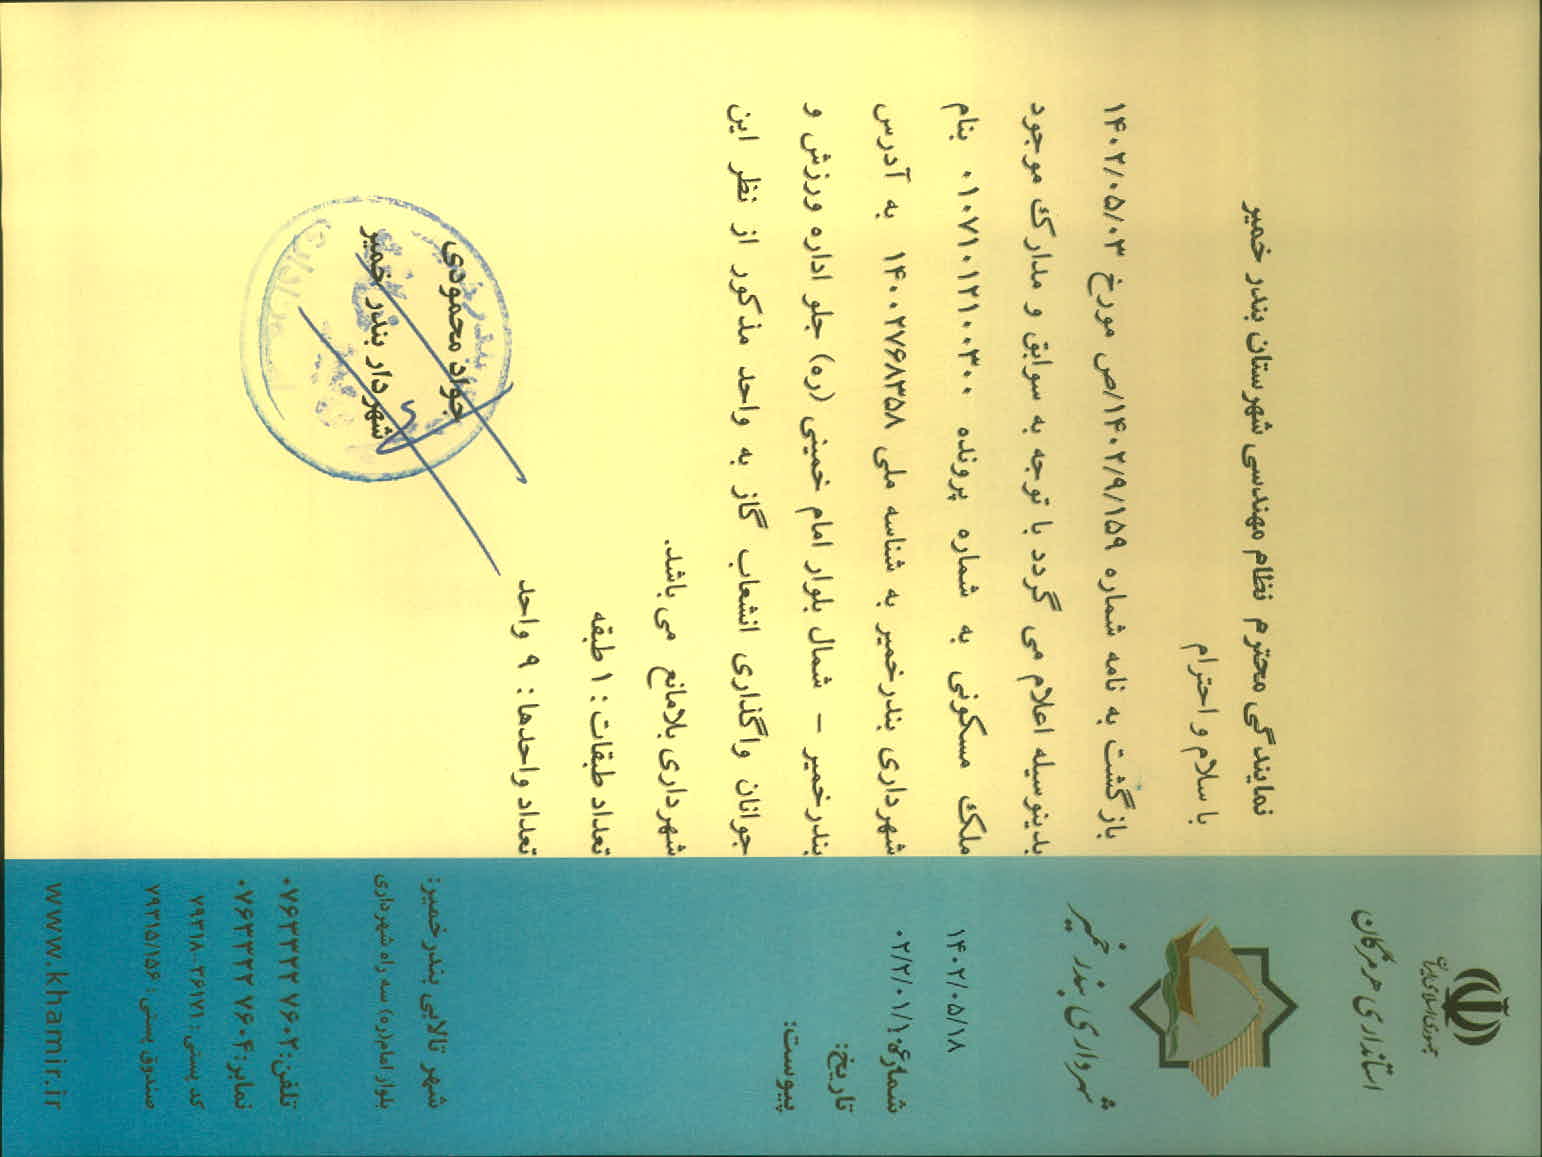 جمهوری اسلامی ایران
استانداری هرمزگان
شهرداری بندر خمیر
۱۴۰۲/۰۵/۱۸
شماره:
۰۲/۲/۰۱/۱۰۶
تاریخ:
پیوست:
نمایندگی محترم نظام مهندسی شهرستان بندر خمیر
با سلام و احترام
بازگشت به نامه شماره ۱۴۰۲/۹/۱۵۹/ص مورخ ۱۴۰۲/۰۵/۰۳
بدینوسیله اعلام می گردد با توجه به سوابق و مدارک موجود
ملک مسکونی به شماره پرونده ۰۱۰۷۱۰۱۲۱۰۰۳۰۰ بنام
شهرداری بندرخمیر به شناسه ملی ۱۴۰۰۲۷۶۸۳۵۸ به آدرس
بندرخمیر – شمال بلوار امام خمینی (ره) جلو اداره ورزش و
جوانان واگذاری انشعاب گاز به واحد مذکور از نظر این
شهرداری بلامانع می باشد.
تعداد طبقات: ۱ طبقه
تعداد واحدها: ۹ واحد
جواد محمودی
شهردار بندر خمیر
شهر تالابی بندرخمیر:
بلوار امام(ره) سه راه شهرداری
تلفن: ۰۷۶۳۳۲۲ ۷۶۰۲
نمابر: ۰۷۶۳۳۲۲ ۷۶۰۴
کد پستی: ۷۹۳۱۸-۳۶۱۷۱
صندوق پستی: ۷۹۳۱۵/۱۵۶
www.khamir.ir